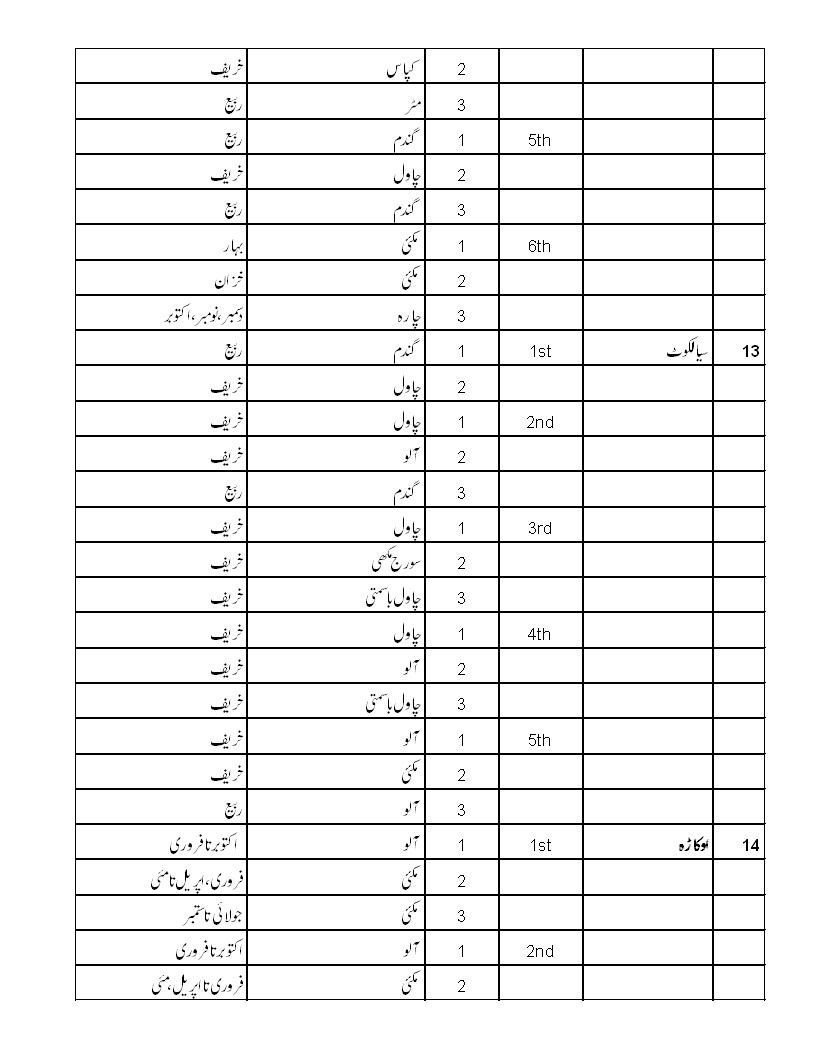 2 کپاس خریف
3 مٹر ربیع
5th 1 گندم ربیع
2 چاول خریف
3 گندم ربیع
6th 1 مکئی بہار
2 مکئی خزاں
3 چارہ دسمبر،نومبر،اکتوبر
13 سیالکوٹ 1st 1 گندم ربیع
2 چاول خریف
2nd 1 چاول خریف
2 آلو خریف
3 گندم ربیع
3rd 1 چاول خریف
2 سورج مکھی خریف
3 چاول باسمتی خریف
4th 1 چاول خریف
2 آلو خریف
3 چاول باسمتی خریف
5th 1 آلو خریف
2 مکئی خریف
3 آلو ربیع
14 اوکاڑہ 1st 1 آلو اکتوبر تا فروری
2 مکئی فروری،اپریل تا مئی
3 مکئی جولائی تا ستمبر
2nd 1 آلو اکتوبر تا فروری
2 مکئی فروری تا اپریل،مئی